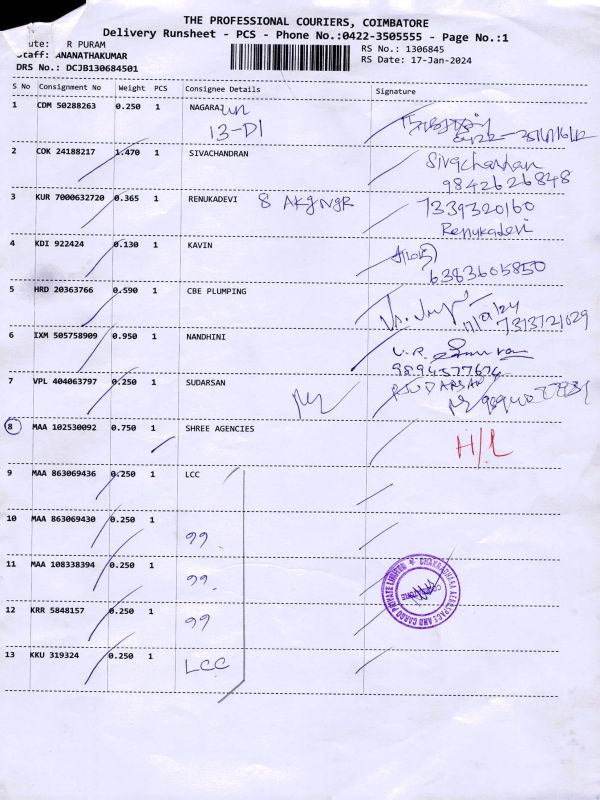 THE PROFESSIONAL COURIERS, COIMBATORE
Delivery Runsheet - PCS - Phone No.:0422-3505555 - Page No.:1
ute: R PURAM
RS No.: 1306845
taff: ANANATHAKUMAR
RS Date: 17-Jan-2024
DRS No.: DCJB130684501
S No Consignment No Weight PCS Consignee Details Signature
1 CDM 50288263 0.250 1 NAGARAJ
13-D1
2 COK 24188217 1.470 1 SIVACHANDRAN Sivachandran
9842626848
3 KUR 7000632720 0.365 1 RENUKADEVI 8 AKGNGR 7339320160
Renukadevi
4 KDI 922424 0.130 1 KAVIN
6383605850
5 HRD 20363766 0.590 1 CBE PLUMPING
17/01/24
7373721029
6 IXM 505758909 0.950 1 NANDHINI
9894577674
7 VPL 404063797 0.250 1 SUDARSAN R SUDARSAN
8 MAA 102530092 0.750 1 SHREE AGENCIES H/L
9 MAA 863069436 0.250 1 LCC
10 MAA 863069430 0.250 1
99
11 MAA 108338394 0.250 1
99
12 KRR 5848157 0.250 1
99
13 KKU 319324 0.250 1
LCC
CHAKRADHARA AEROSPACE AND CARGO PRIVATE LIMITED